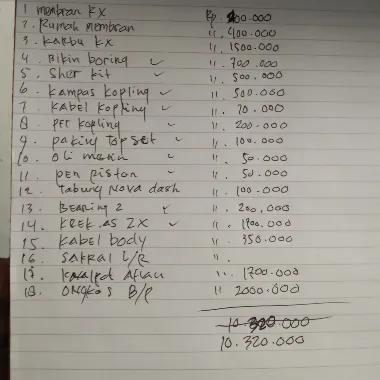 1 membran KX Rp. 200.000
2. Rumah membran ". 400.000
3. Karbu KX ". 1500.000
4. Bikin boring ✓ ". 700.000
5. Sher kit ✓ ". 500.000
6. Kampas kopling ✓ ". 500.000
7. Kabel kopling ✓ ". 70.000
8. per kopling ✓ ". 200.000
9. paking top set ✓ ". 100.000
10. oli mesin ✓ ". 50.000
11. pen piston ✓ ". 50.000
12. Tabung Nova dash ". 100.000
13. Bearing 2 ✓ ". 200.000
14. KREK AS ZX ✓ ".
15. Kabel body ". 350.000
16. SAKRAL L/R ".
17. Knalpot ". 1700.000
18. ONGKOS B/P " 2000.000
10.320.000
10.320.000